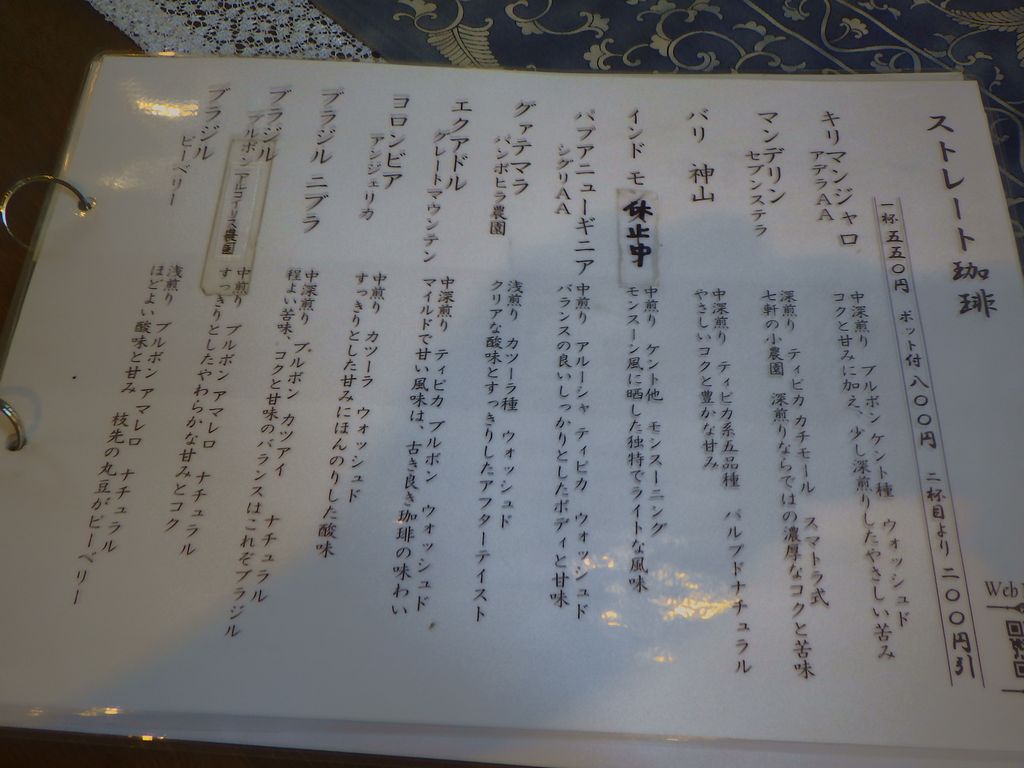 ストレート珈琲
一杯 五五〇円 ポット付 八〇〇円 二杯目より 二〇〇円引
キリマンジャロ
アデラAA
中深煎り ブルボン ケント種 ウォッシュド
コクと甘みに加え、少し深煎りしたやさしい苦み
マンデリン
セブンステラ
深煎り ティピカ カチモール スマトラ式
七軒の小農園 深煎りならではの濃厚なコクと苦味
バリ 神山
中深煎り ティピカ系五品種 パルプドナチュラル
やさしいコクと豊かな甘み
インド モ
休止中
中煎り ケント他 モンスーニング
モンスーン風に晒した独特でライトな風味
パプアニューギニア
シグリAA
中煎り アルーシャ ティピカ ウォッシュド
バランスの良いしっかりとしたボディと甘味
グァテマラ
パンポヒラ農園
浅煎り カツーラ種 ウォッシュド
クリアな酸味とすっきりしたアフターテイスト
エクアドル
グレートマウンテン
中深煎り ティピカ ブルボン ウォッシュド
マイルドで甘い風味は、古き良き珈琲の味わい
コロンビア
アンジェリカ
中煎り カツーラ ウォッシュド
すっきりとした甘みにほんのりした酸味
ブラジル ニブラ
中深煎り ブルボン カツアイ ナチュラル
程よい苦味、コクと甘味のバランスはこれぞブラジル
ブラジル
ブルボン
農園
中煎り ブルボン アマレロ ナチュラル
すっきりとしたやわらかな甘みとコク
ブラジル
ピーベリー
浅煎り ブルボン アマレロ ナチュラル
ほどよい酸味と甘み 枝先の丸豆がピーベリー
Web